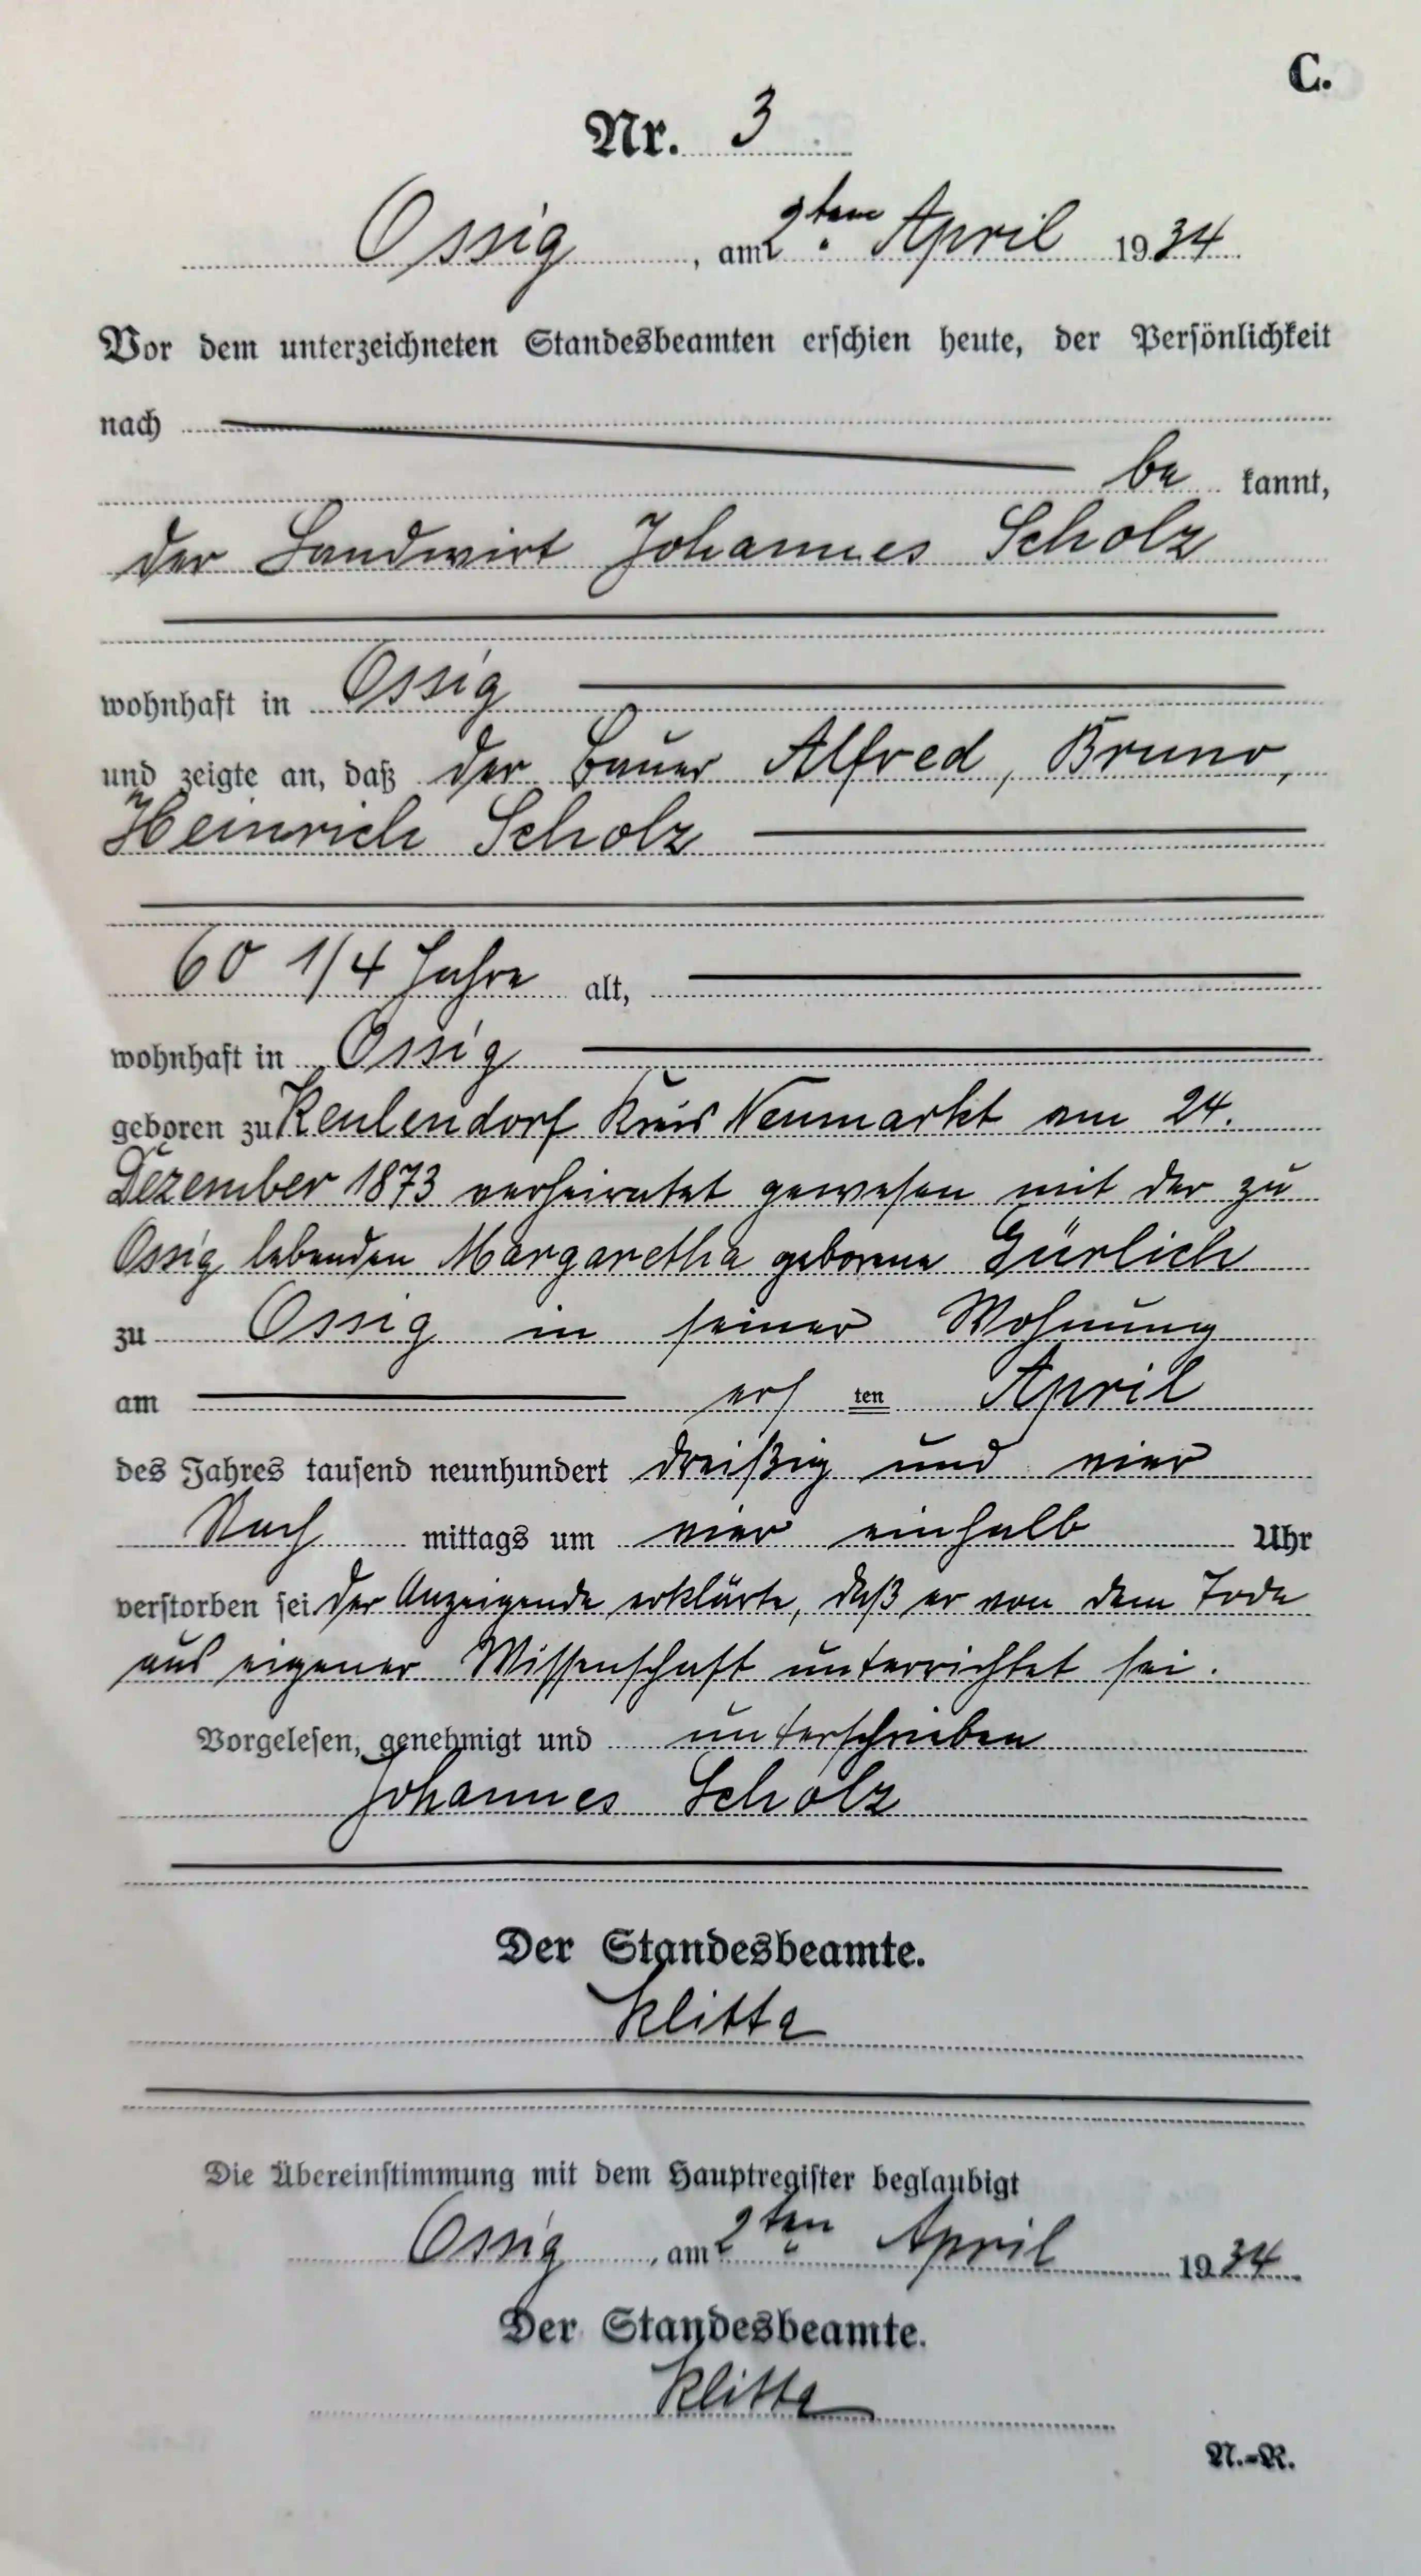 C.
Nr. 3
Ossig, am 2ten April 1934
Vor dem unterzeichneten Standesbeamten erschien heute, der Persönlichkeit
nach
be kannt,
der Landwirt Johannes Scholz
wohnhaft in Ossig
und zeigte an, daß der Bauer Alfred, Bruno,
Heinrich Scholz
60 1/4 Jahre alt,
wohnhaft in Ossig
geboren zu Keulendorf Kreis Neumarkt am 24.
Dezember 1873 verheiratet gewesen mit der zu
Ossig lebenden Margaretha geborene Gürlich
zu Ossig in seiner Wohnung
am ers ten April
des Jahres tausend neunhundert dreißig und vier
Nach mittags um vier einhalb Uhr
verstorben sei. Der Anzeigende erklärte, daß er von dem Tode
aus eigener Wissenschaft unterrichtet sei.
Vorgelesen, genehmigt und unterschrieben
Johannes Scholz
Der Standesbeamte.
Klitta
Die Übereinstimmung mit dem Hauptregister beglaubigt
Ossig, am 2ten April 1934.
Der Standesbeamte.
Klitta
N.-R.